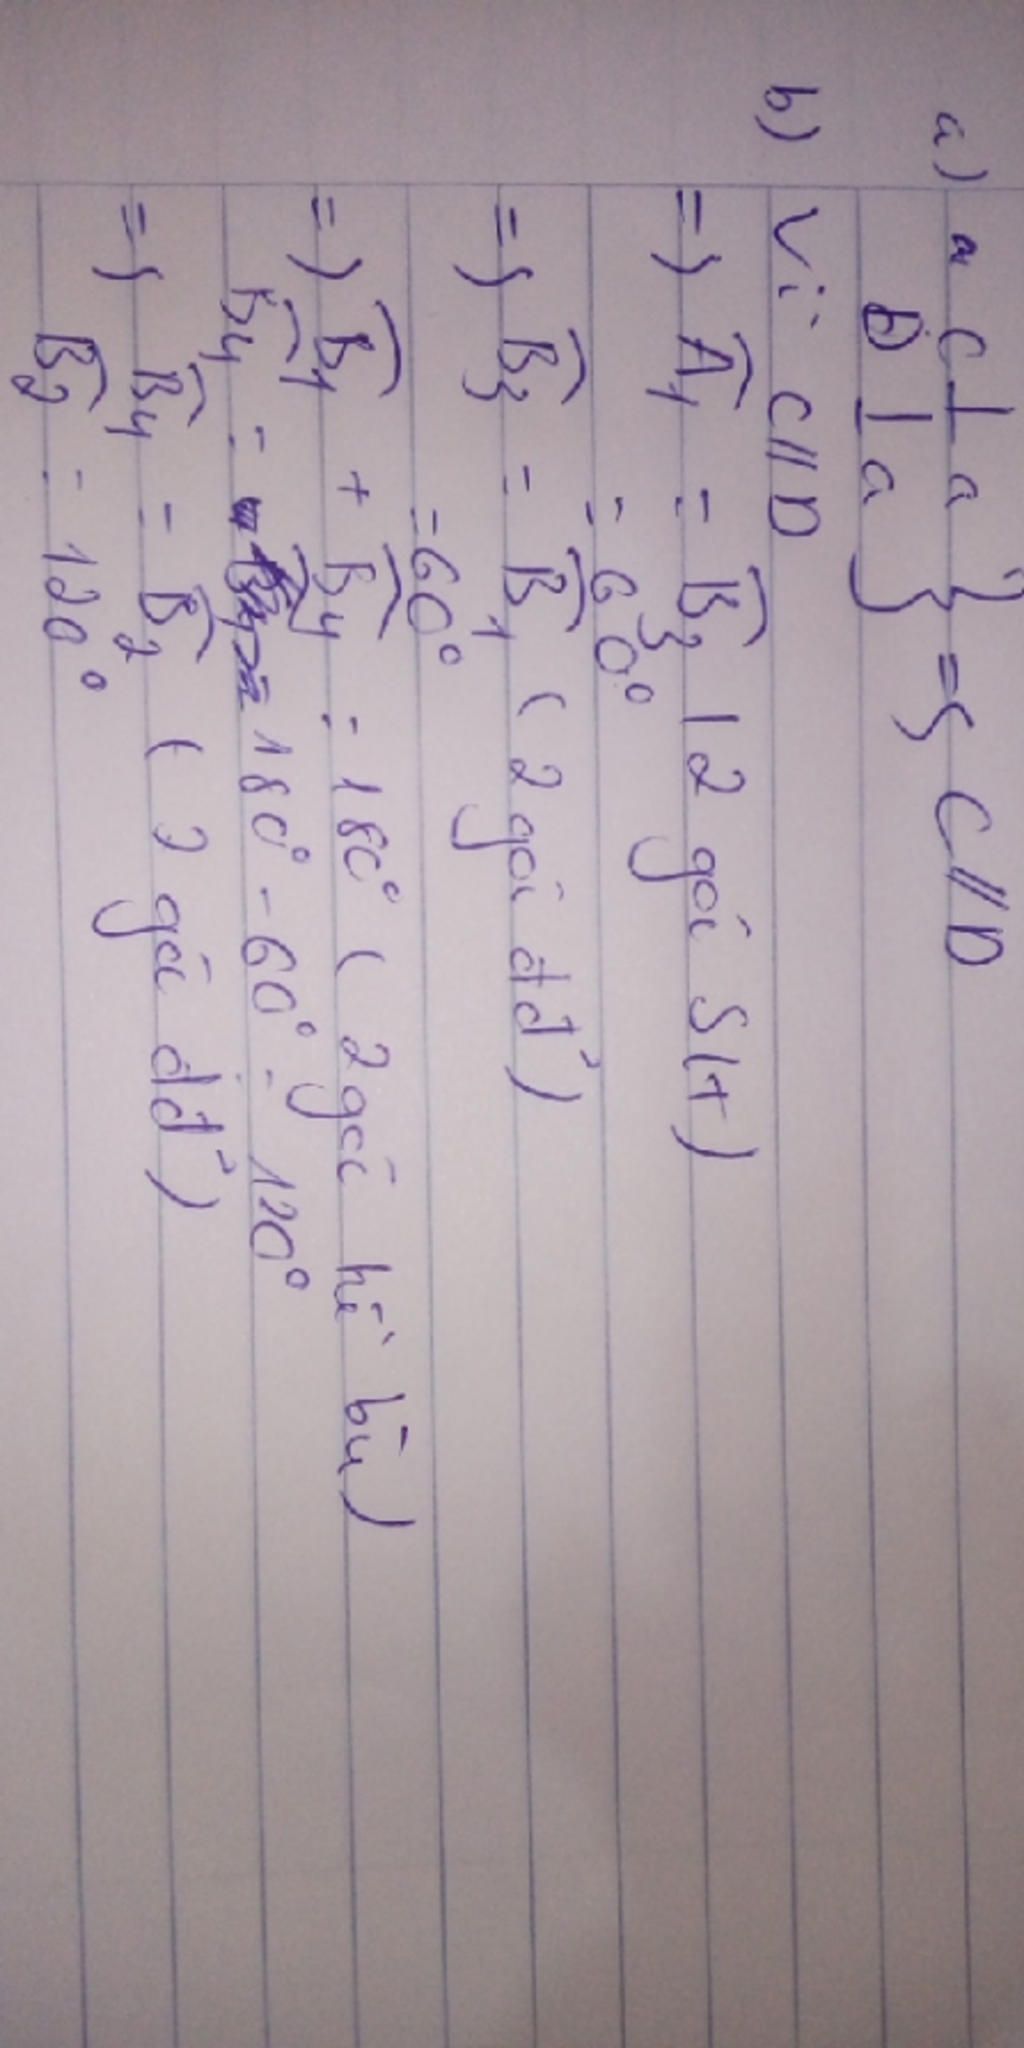 a) c ⊥ a
b ⊥ a } => C // D
b) Vì C // D
=> Â1 = B̂3 ( 2 góc slt )
= 60°
=> B̂3 = B̂1 ( 2 góc đđ )
= 60°
=> B̂1 + B̂4 = 180° ( 2 góc kề bù )
B̂4 = 180° - 60° = 120°
=> B̂4 = B̂2 ( 2 góc đđ )
B̂2 = 120°